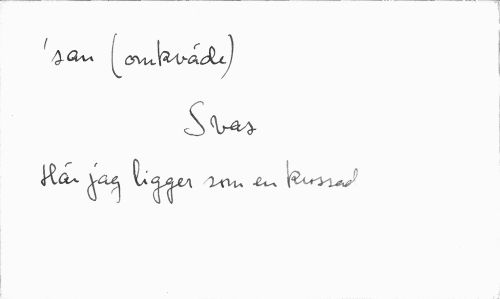 'san (omkväde)
Svas
Här jag ligger som en krossad